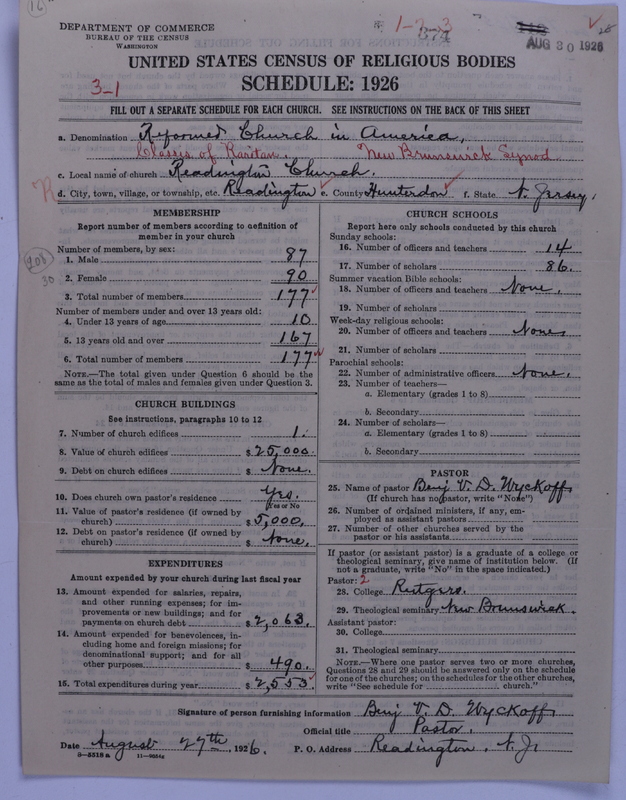 DEPARTMENT OF COMMERCE
BUREAU OF THE CENSUS
WASHINGTON
1-2-3
AUG 30 1926
UNITED STATES CENSUS OF RELIGIOUS BODIES
SCHEDULE: 1926
3-1
FILL OUT A SEPARATE SCHEDULE FOR EACH CHURCH. SEE INSTRUCTIONS ON THE BACK OF THIS SHEET
a. Denomination Reformed Church in America,
Classis of Raritan, New Brunswick Synod
c. Local name of church Readington Church.
d. City, town, village, or township, etc. Readington e. County Hunterdon f. State N. Jersey,
MEMBERSHIP
Report number of members according to definition of
member in your church
Number of members, by sex:
1. Male 87
2. Female 90
3. Total number of members 177
Number of members under and over 13 years old:
4. Under 13 years of age 10
5. 13 years old and over 167
6. Total number of members 177
NOTE.—The total given under Question 6 should be the
same as the total of males and females given under Question 3.
CHURCH BUILDINGS
See instructions, paragraphs 10 to 12
7. Number of church edifices 1.
8. Value of church edifices $25,000.
9. Debt on church edifices $ None.
10. Does church own pastor's residence Yes.
(Yes or No)
11. Value of pastor's residence (if owned by
church) $5,000,
12. Debt on pastor's residence (if owned by
church) $ None,
EXPENDITURES
Amount expended by your church during last fiscal year
13. Amount expended for salaries, repairs,
and other running expenses; for im-
provements or new buildings; and for
payments on church debt $2,063.
14. Amount expended for benevolences, in-
cluding home and foreign missions; for
denominational support; and for all
other purposes $ 490.
15. Total expenditures during year $2,553
CHURCH SCHOOLS
Report here only schools conducted by this church
Sunday schools:
16. Number of officers and teachers 14
17. Number of scholars 86.
Summer vacation Bible schools:
18. Number of officers and teachers None.
19. Number of scholars
Week-day religious schools:
20. Number of officers and teachers None
21. Number of scholars
Parochial schools:
22. Number of administrative officers None.
23. Number of teachers—
a. Elementary (grades 1 to 8)
b. Secondary
24. Number of scholars—
a. Elementary (grades 1 to 8)
b. Secondary
PASTOR
25. Name of pastor Benj V. D. Wyckoff
(If church has no pastor, write "None")
26. Number of ordained ministers, if any, em-
ployed as assistant pastors
27. Number of other churches served by the
pastor or his assistants
If pastor (or assistant pastor) is a graduate of a college or
theological seminary, give name of institution below. (If
not a graduate, write "No" in the space indicated.)
Pastor: 2
28. College Rutgers.
29. Theological seminary New Brunswick.
Assistant pastor:
30. College
31. Theological seminary
NOTE.—Where one pastor serves two or more churches,
Questions 28 and 29 should be answered only on the schedule
for one of the churches; on the schedules for the other churches,
write "See schedule for church."
Signature of person furnishing information Benj V. D. Wyckoff
Official title Pastor.
Date August 27th, 1926. P. O. Address Readington, N. J.